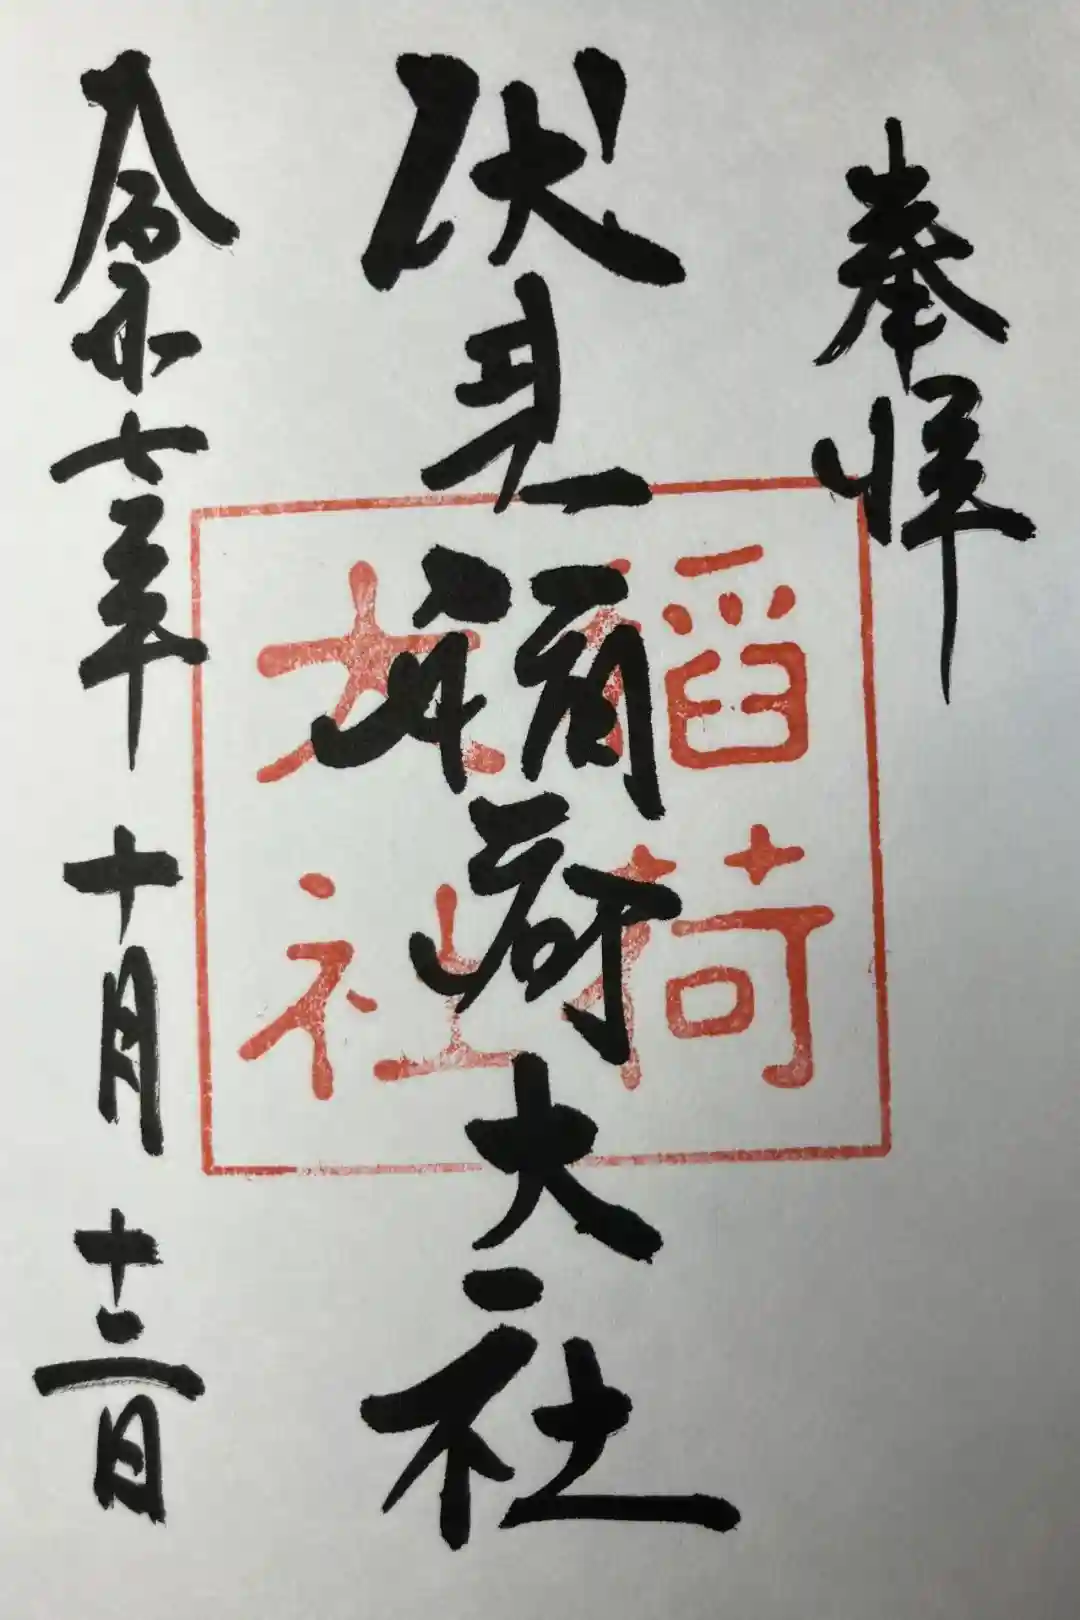 奉拝
伏見稲荷大社
稲荷
大社
令和七年 十月 十二日